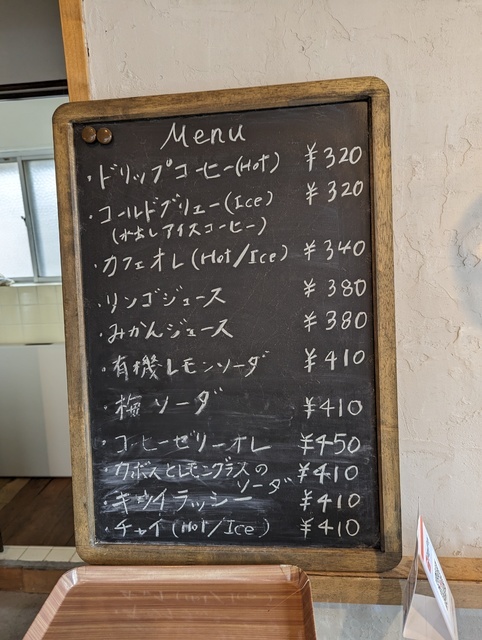 Menu
・ドリップコーヒー(Hot) ¥320
・コールドブリュー(Ice) ¥320
(水出しアイスコーヒー)
・カフェオレ(Hot/Ice) ¥340
・リンゴジュース ¥380
・みかんジュース ¥380
・有機レモンソーダ ¥410
・梅ソーダ ¥410
・コーヒーゼリーオレ ¥450
・カボスとレモングラスの ¥410
ソーダ
・キウイラッシー ¥410
・チャイ(Hot/Ice) ¥410